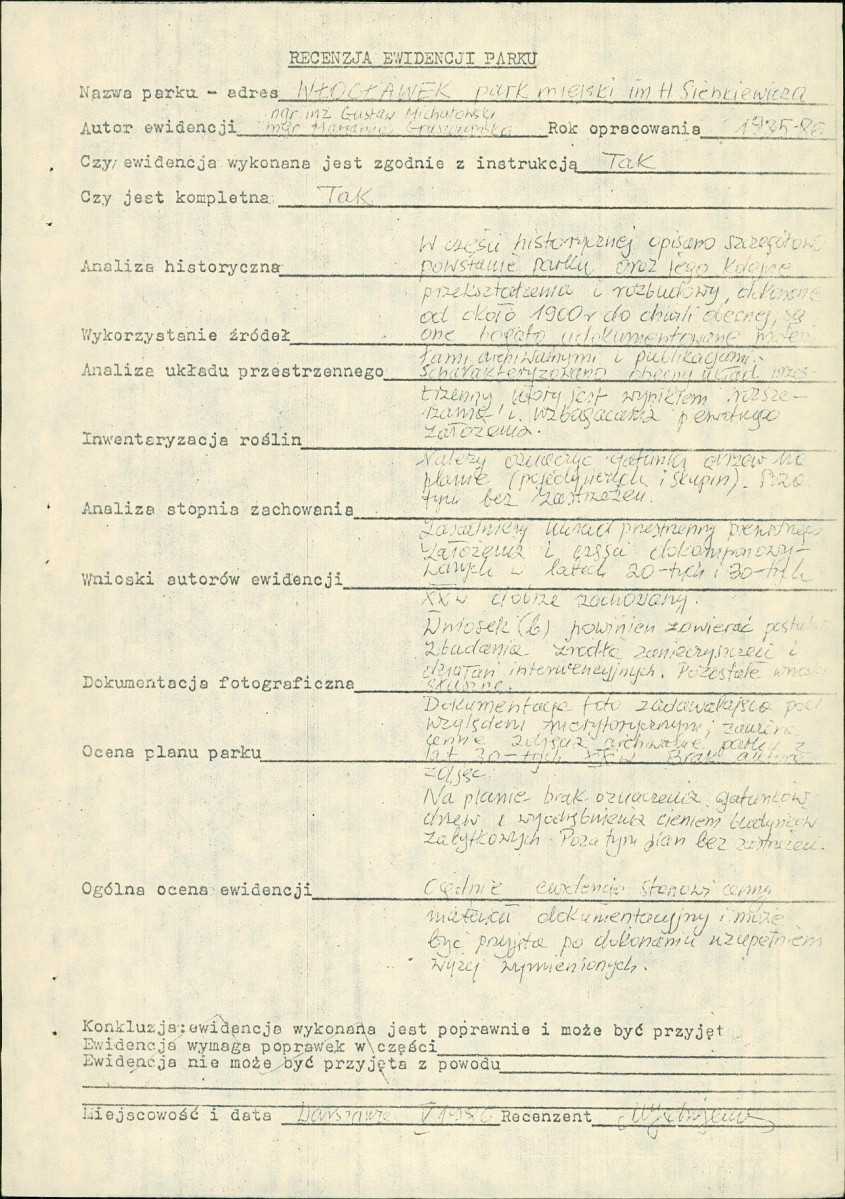 RECENZJA EWIDENCJI PARKU
Nazwa parku - adres WŁOCŁAWEK park miejski im H Sienkiewicza
mgr inż Gustaw Michałowski
Autor ewidencji mgr Marianna Rok opracowania 1985-86
Czy ewidencja wykonana jest zgodnie z instrukcją Tak
Czy jest kompletna Tak
W części historycznej opisano szczegółowo
Analiza historyczna powstanie parku oraz jego kolejne
przekształcenia i rozbudowy, dokonane
od około 1900 r do chwili obecnej, są
Wykorzystanie źródeł one bogato udokumentowane materia
łami archiwalnymi i publikacjami.
Analiza układu przestrzennego Scharakteryzowano obecny układ przes-
trzenny który jest wynikiem rozsze-
rzania i wzbogacania pierwotnego
Inwentaryzacja roślin założenia.
Należy oznaczyć gatunki drzew na
planie (pojedynczych i skupin). Poza
Analiza stopnia zachowania tym bez zastrzeżeń.
Zasadniczy układ przestrzenny pierwotnego
założenia i części dokomponowy-
Wnioski autorów ewidencji wanych w latach 20-tych i 30-tych
XX w dobrze zachowany.
Wniosek (6) powinien zawierać postulat
zbadania źródła zanieczyszczeń i
działań interwencyjnych. Pozostałe wnioski
Dokumentacja fotograficzna słuszne.
Dokumentacja foto zadawalająca pod
względem merytorycznym; zawiera
cenne zdjęcia archiwalne parku z
Ocena planu parku lat 30-tych XX w. Brak autora
zdjęć.
Na planie brak oznaczenia gatunków
drzew i wyodrębnienia cieniem budynków
zabytkowych. Poza tym plan bez zastrzeżeń.
Ogólna ocena ewidencji Ogólnie ewidencja stanowi cenny
materiał dokumentacyjny i może
być przyjęta po dokonaniu uzupełnień
wyżej wymienionych.
Konkluzja: ewidencja wykonana jest poprawnie i może być przyjęt
Ewidencja wymaga poprawek w części
Ewidencja nie może być przyjęta z powodu
Miejscowość i data Warszawa V 1986 Recenzent